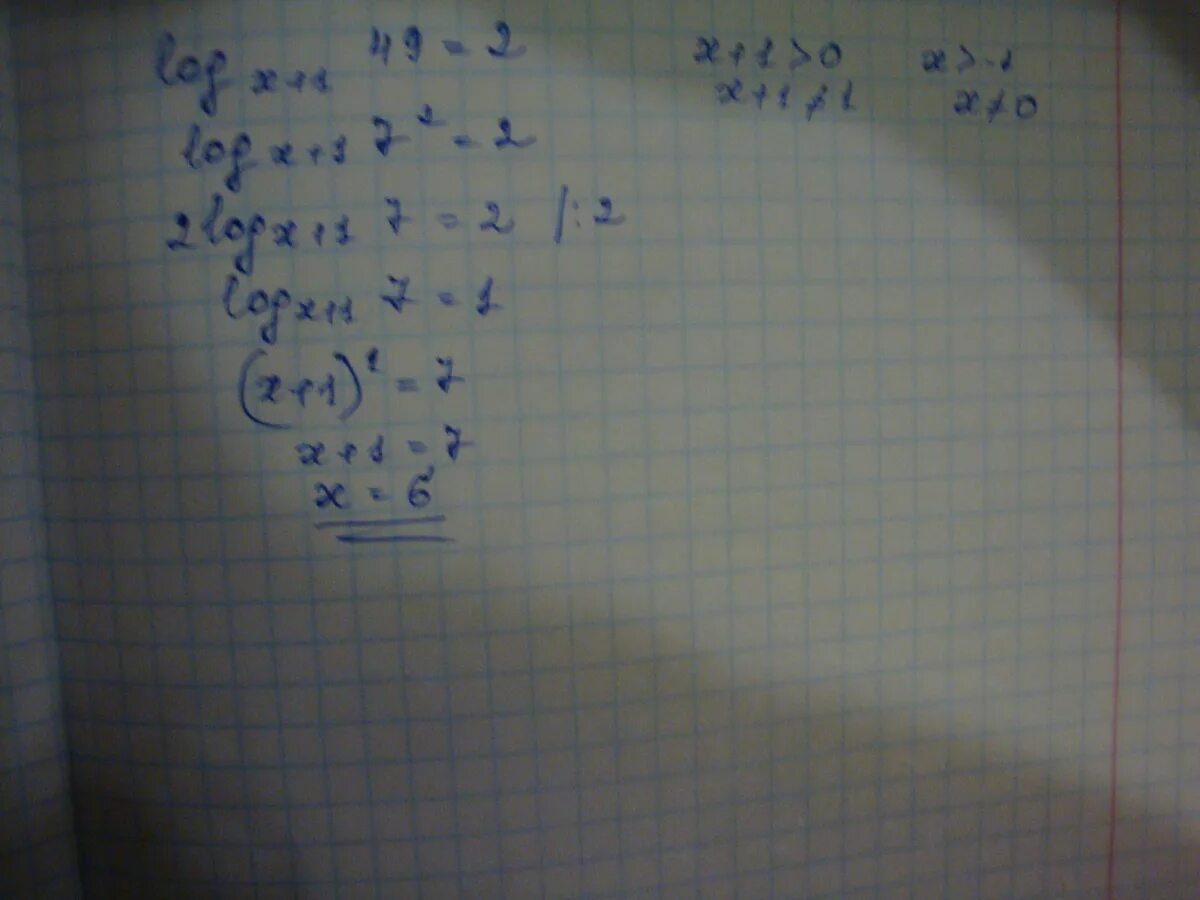 log x+1 49 = 2
x+1 > 0 x > -1
x+1 ≠ 1 x ≠ 0
log x+1 7² = 2
2 log x+1 7 = 2 /:2
log x+1 7 = 1
(x+1)¹ = 7
x+1 = 7
x = 6